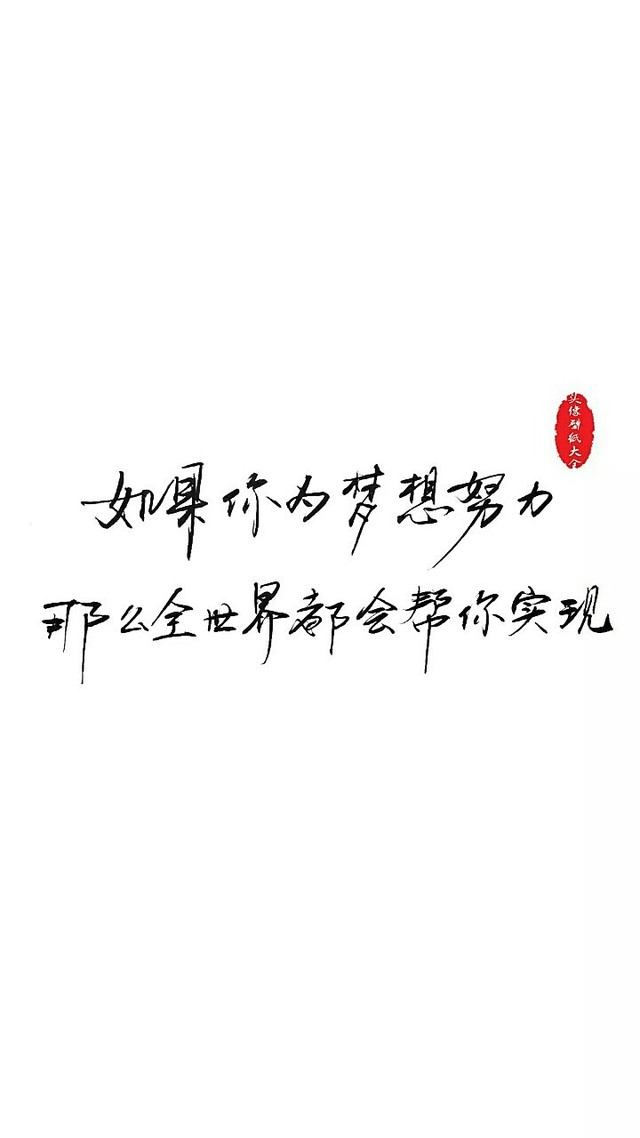 头像壁纸大全
如果你为梦想努力
那么全世界都会帮你实现